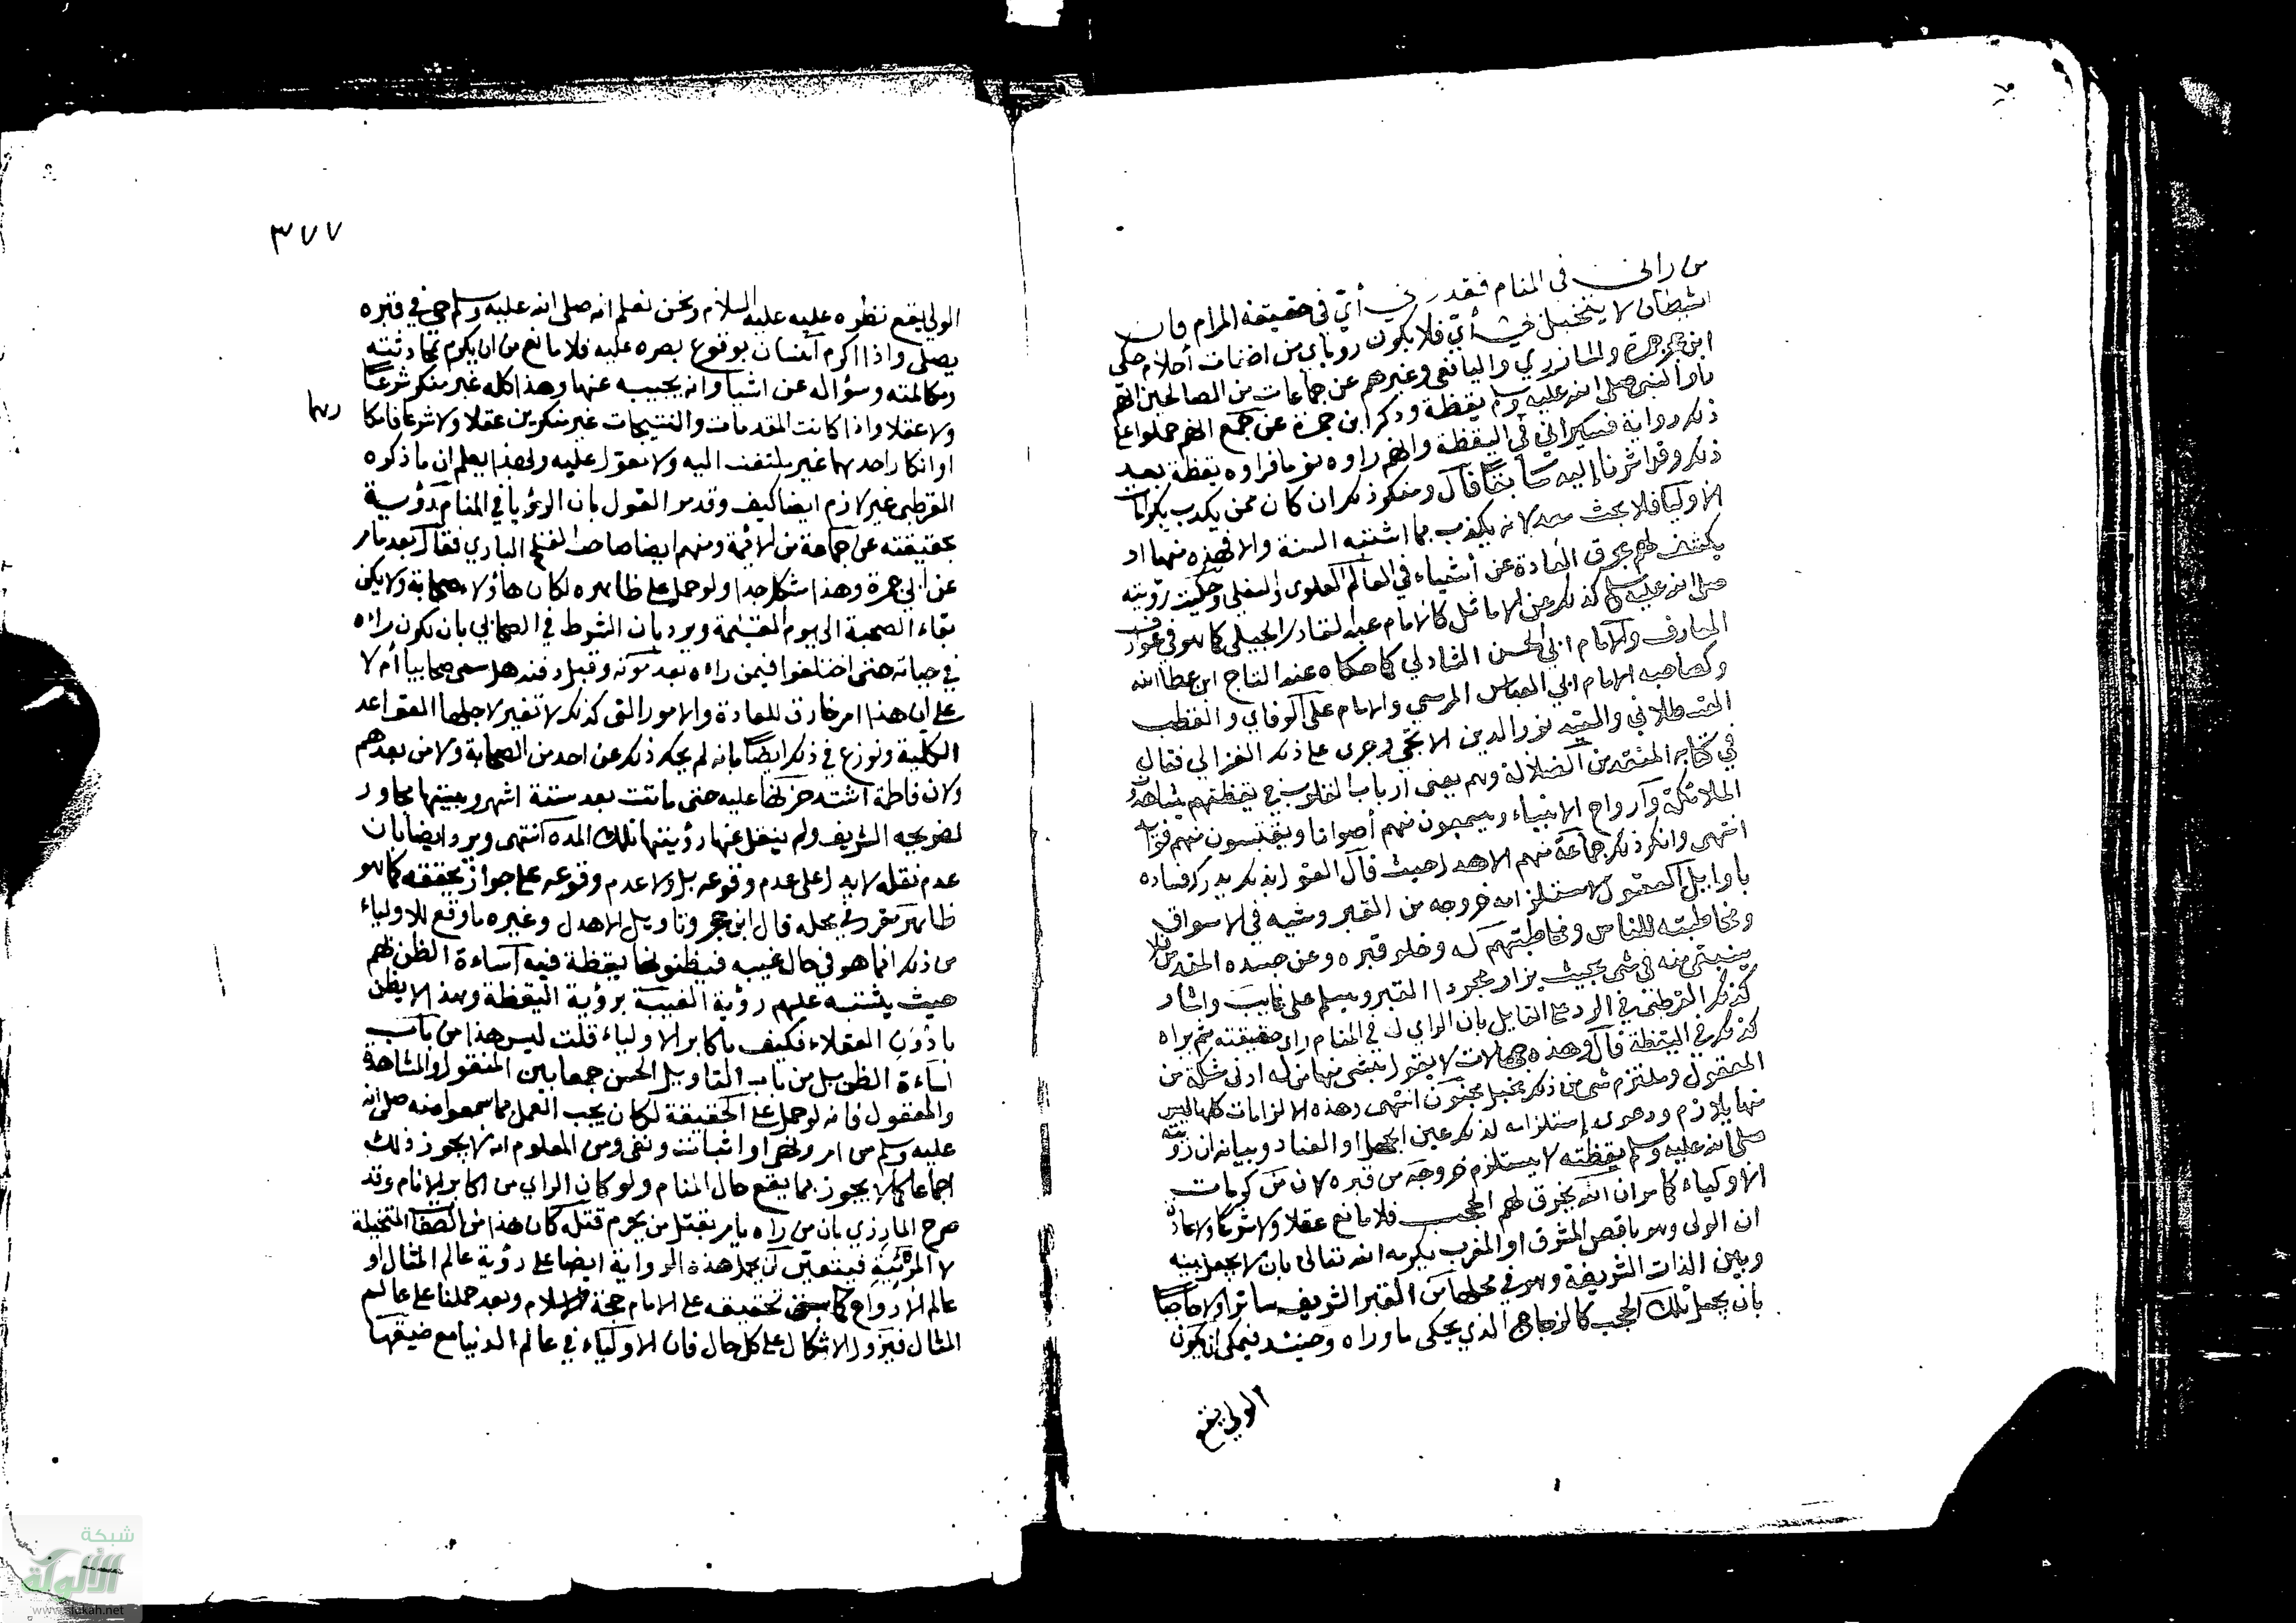 من راني في المنام فقد رني أيّ في حقيقة المرام فان
الشيطان لا يتخيل في أيّ فلا يكون روياي من اضغاث أحلام حكى
ابن ابي جمرة والمازري واليافعي وغيرهم عن جماعات من الصالحين انهم
راوا النبي صلى الله عليه وسلم يقظة وذكر ابن جمرة عن جمع انهم حملوا على
ذلك رواية فسيراني في اليقظة وانهم راوه نوما فراوه يقظة بعد
ذلك وقد اشرنا إليه سابقا قال ومنكر ذلك ان كان ممن يكذب بكرامات
الاوليا فلا بحث معه لانه يكذب بما اثبتته السنة والا فهذه منها اذ
يكشف لهم بخرق العادة عن أشياء في العالم العلوي والسفلي وحكيت رؤيته
صلى الله عليه وسلم كذلك عن الاماثل كالامام عبد القادر الجيلي كما هو في عوارف
المعارف والامام ابي الحسن الشاذلي كما حكاه عنه التاج ابن عطا الله
وكصاحبه الامام ابي العباس المرسي والامام على الوفاي والقطب
القسطلاني والسيد نور الدين الايجي وجرى على ذلك الغزالي فقال
في كتابه المنقذ من الضلالة وهم يعني ارباب القلوب في يقظتهم يشاهدون
الملائكة وأرواح الانبياء ويسمعون منهم أصواتا ويقتبسون منهم فوائد
انتهى وانكر ذلك جماعة منهم الاهدل حيث قال القول بذلك يدرك فساده
باوايل العقول لاستلزامه خروجه من القبر ومشيه في الاسواق
ومخاطبته للناس ومخاطبتهم له وخلو قبره وعن جسده المقدس فلا
يبقى منه في شي بحيث يزار مجرد القبر ويسلم على غايب واشار
كذلك القرطبي في الرد على القايل بان الراي له في المنام راى حقيقته ثم يراه
كذلك في اليقظة قال وهذه جهالات لا يقول بشي منها من له ادنى مسكة من
المعقول وملتزم شي من ذلك مخبل مجنون انتهى وهذه الالزامات كلها ليس
منها بلازم ودعوى إستلزامه لذلك عين الجهل او العناد وبيانه ان رؤيته
صلى الله عليه وسلم يقظة لا يستلزم خروجه من قبره لان من كرمات
الاولياء كما مر ان الله يخرق لهم الحجب فلا مانع عقلا ولا شرعا ولا عادة
ان الولى وهو باقصى المشرق او المغرب يكرمه الله تعالى بان لا يجعل بينه
وبين الذات الشريفة وهو في محلها من القبر الشريف ساترا ولا حاجبا
بان يجعل تلك الحجب كالزجاج الذي يحكى ما وراه وحينئذ فيمكن ان يكون
الولي يقع
٣٧٧
الولي يقع نظره عليه عليه السلام ونحن نعلم انه صلى الله عليه وسلم حي في قبره
يصلى واذا اكرم انسان بوقوع بصره عليه فلا مانع من ان يكرم بمحادثته
ومكالمته وسؤاله عن اشيا وانه يجيبه عنها وهذا كله غير منكر شرعا
ولا عقلا واذا كانت المقدمات والنتيجات غير منكرين عقلا ولا شرعا فانكارهما
او انكار احدهما غير ملتفت اليه ولا معول عليه وبهذا يعلم ان ما ذكره
القرطبي غير لازم ايضا كيف وقد مر القول بان الرؤيا في المنام رؤية
بحقيقته عن جماعة من الائمة ومنهم ايضا صاحب الفتح الباري فقال بعد ما مر
عن ابي جمرة وهذا مشكل جدا ولو حمل على ظاهره لكان هاؤلاء صحابة ولا يكن
بقاء الصحبة الى يوم القيمة ويرد بان الشرط في الصحابي بان يكون راه
في حياته حتى اختلفوا فيمن راه بعد موته وقبل دفنه هل يسمى صحابيا أم لا
على ان هذا امر خارق للعادة والامور التي كذلك لا تغير لاجلها القواعد
الكلية ونوزع في ذلك ايضا بانه لم يحك ذلك عن احد من الصحابة ولا من بعدهم
ولان فاطمة اشتد حزنها عليه حتى ماتت بعد ستة اشهر وبيتها مجاور
لضريحه الشريف ولم ينقل عنها رؤيتها تلك المدة انتهى ويرد ايضا بان
عدم نقله لا يدل على عدم وقوعه بل ولا عدم وقوعه على جواز تحققه كما هو
ظاهر مقرر في محله قال ابن حجر وتاويل الاهدل وغيره ما وقع للاولياء
من ذلك انما هو في حال غيبه فيظنونها يقظة فيه اساءة الظن بهم
حيث يشتبه عليهم رؤية الغيبة برؤية اليقظة وهذا لا يظن
بادون العقلاء فكيف باكابر الاولياء قلت ليس هذا من باب
اساءة الظن بل من باب التاويل الحسن جمعا بين المنقول والمشاهدة
والمعقول فانه لو حمل على الحقيقة لكان يجب العمل بما سمعوا منه صلى الله
عليه وسلم من امر ونهي او اثبات ونفي ومن المعلوم انه لا يجوز ذلك
اجماعا كما لا يجوز بما يقع حال المنام ولو كان الراي من اكابر الانام وقد
صرح المازري بان من راه يامر بقتل من يحرم قتله كان هذا من الصفات المتخيلة
لا المرئية فيتعين ان يحمل هذه الرواية ايضا على رؤية عالم المثال او
عالم الارواح كما سبق تحقيقه على الامام حجة الاسلام وبعد حملنا على عالم
المثال فيزول الاشكال على كل حال فان الاولياء في عالم الدنيا مع ضيقها
شبكة
الألوكة
www.alukah.net